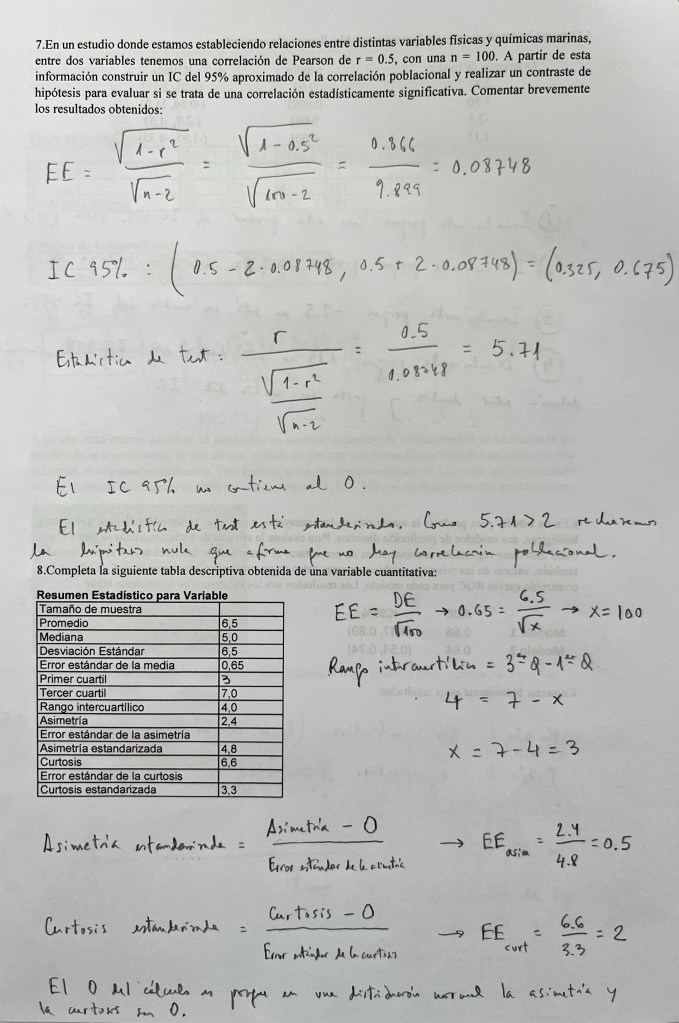 7.En un estudio donde estamos estableciendo relaciones entre distintas variables físicas y químicas marinas,
entre dos variables tenemos una correlación de Pearson de r = 0.5, con una n = 100. A partir de esta
información construir un IC del 95% aproximado de la correlación poblacional y realizar un contraste de
hipótesis para evaluar si se trata de una correlación estadísticamente significativa. Comentar brevemente
los resultados obtenidos:
EE = √(1-r²) / √(n-2) = √(1-0.5²) / √(100-2) = 0.866 / 9.899 = 0.08748
IC 95% : (0.5 - 2·0.08748, 0.5 + 2·0.08748) = (0.325, 0.675)
Estadística de test: r / (√(1-r²) / √(n-2)) = 0.5 / 0.08748 = 5.71
El IC 95% no contiene al 0.
El estadístico de test está estandarizado. Como 5.71 > 2 rechazamos
la hipótesis nula que afirma que no hay correlación poblacional.
8.Completa la siguiente tabla descriptiva obtenida de una variable cuantitativa:
Resumen Estadístico para Variable
Tamaño de muestra
Promedio 6,5
Mediana 5,0
Desviación Estándar 6,5
Error estándar de la media 0,65
Primer cuartil 3
Tercer cuartil 7,0
Rango intercuartílico 4,0
Asimetría 2,4
Error estándar de la asimetría
Asimetría estandarizada 4,8
Curtosis 6,6
Error estándar de la curtosis
Curtosis estandarizada 3,3
EE = DE / √100 → 0.65 = 6.5 / √x → x = 100
Rango intercuartílico = 3er Q - 1er Q
4 = 7 - x
x = 7 - 4 = 3
Asimetría estandarizada = Asimetría - 0 / Error estándar de la → EE asim = 2.4 / 4.8 = 0.5
Curtosis estandarizada = Curtosis - 0 / Error estándar de la curtosis → EE curt = 6.6 / 3.3 = 2
El 0 del cálculo es porque en una distribución normal la asimetría y
la curtosis son 0.